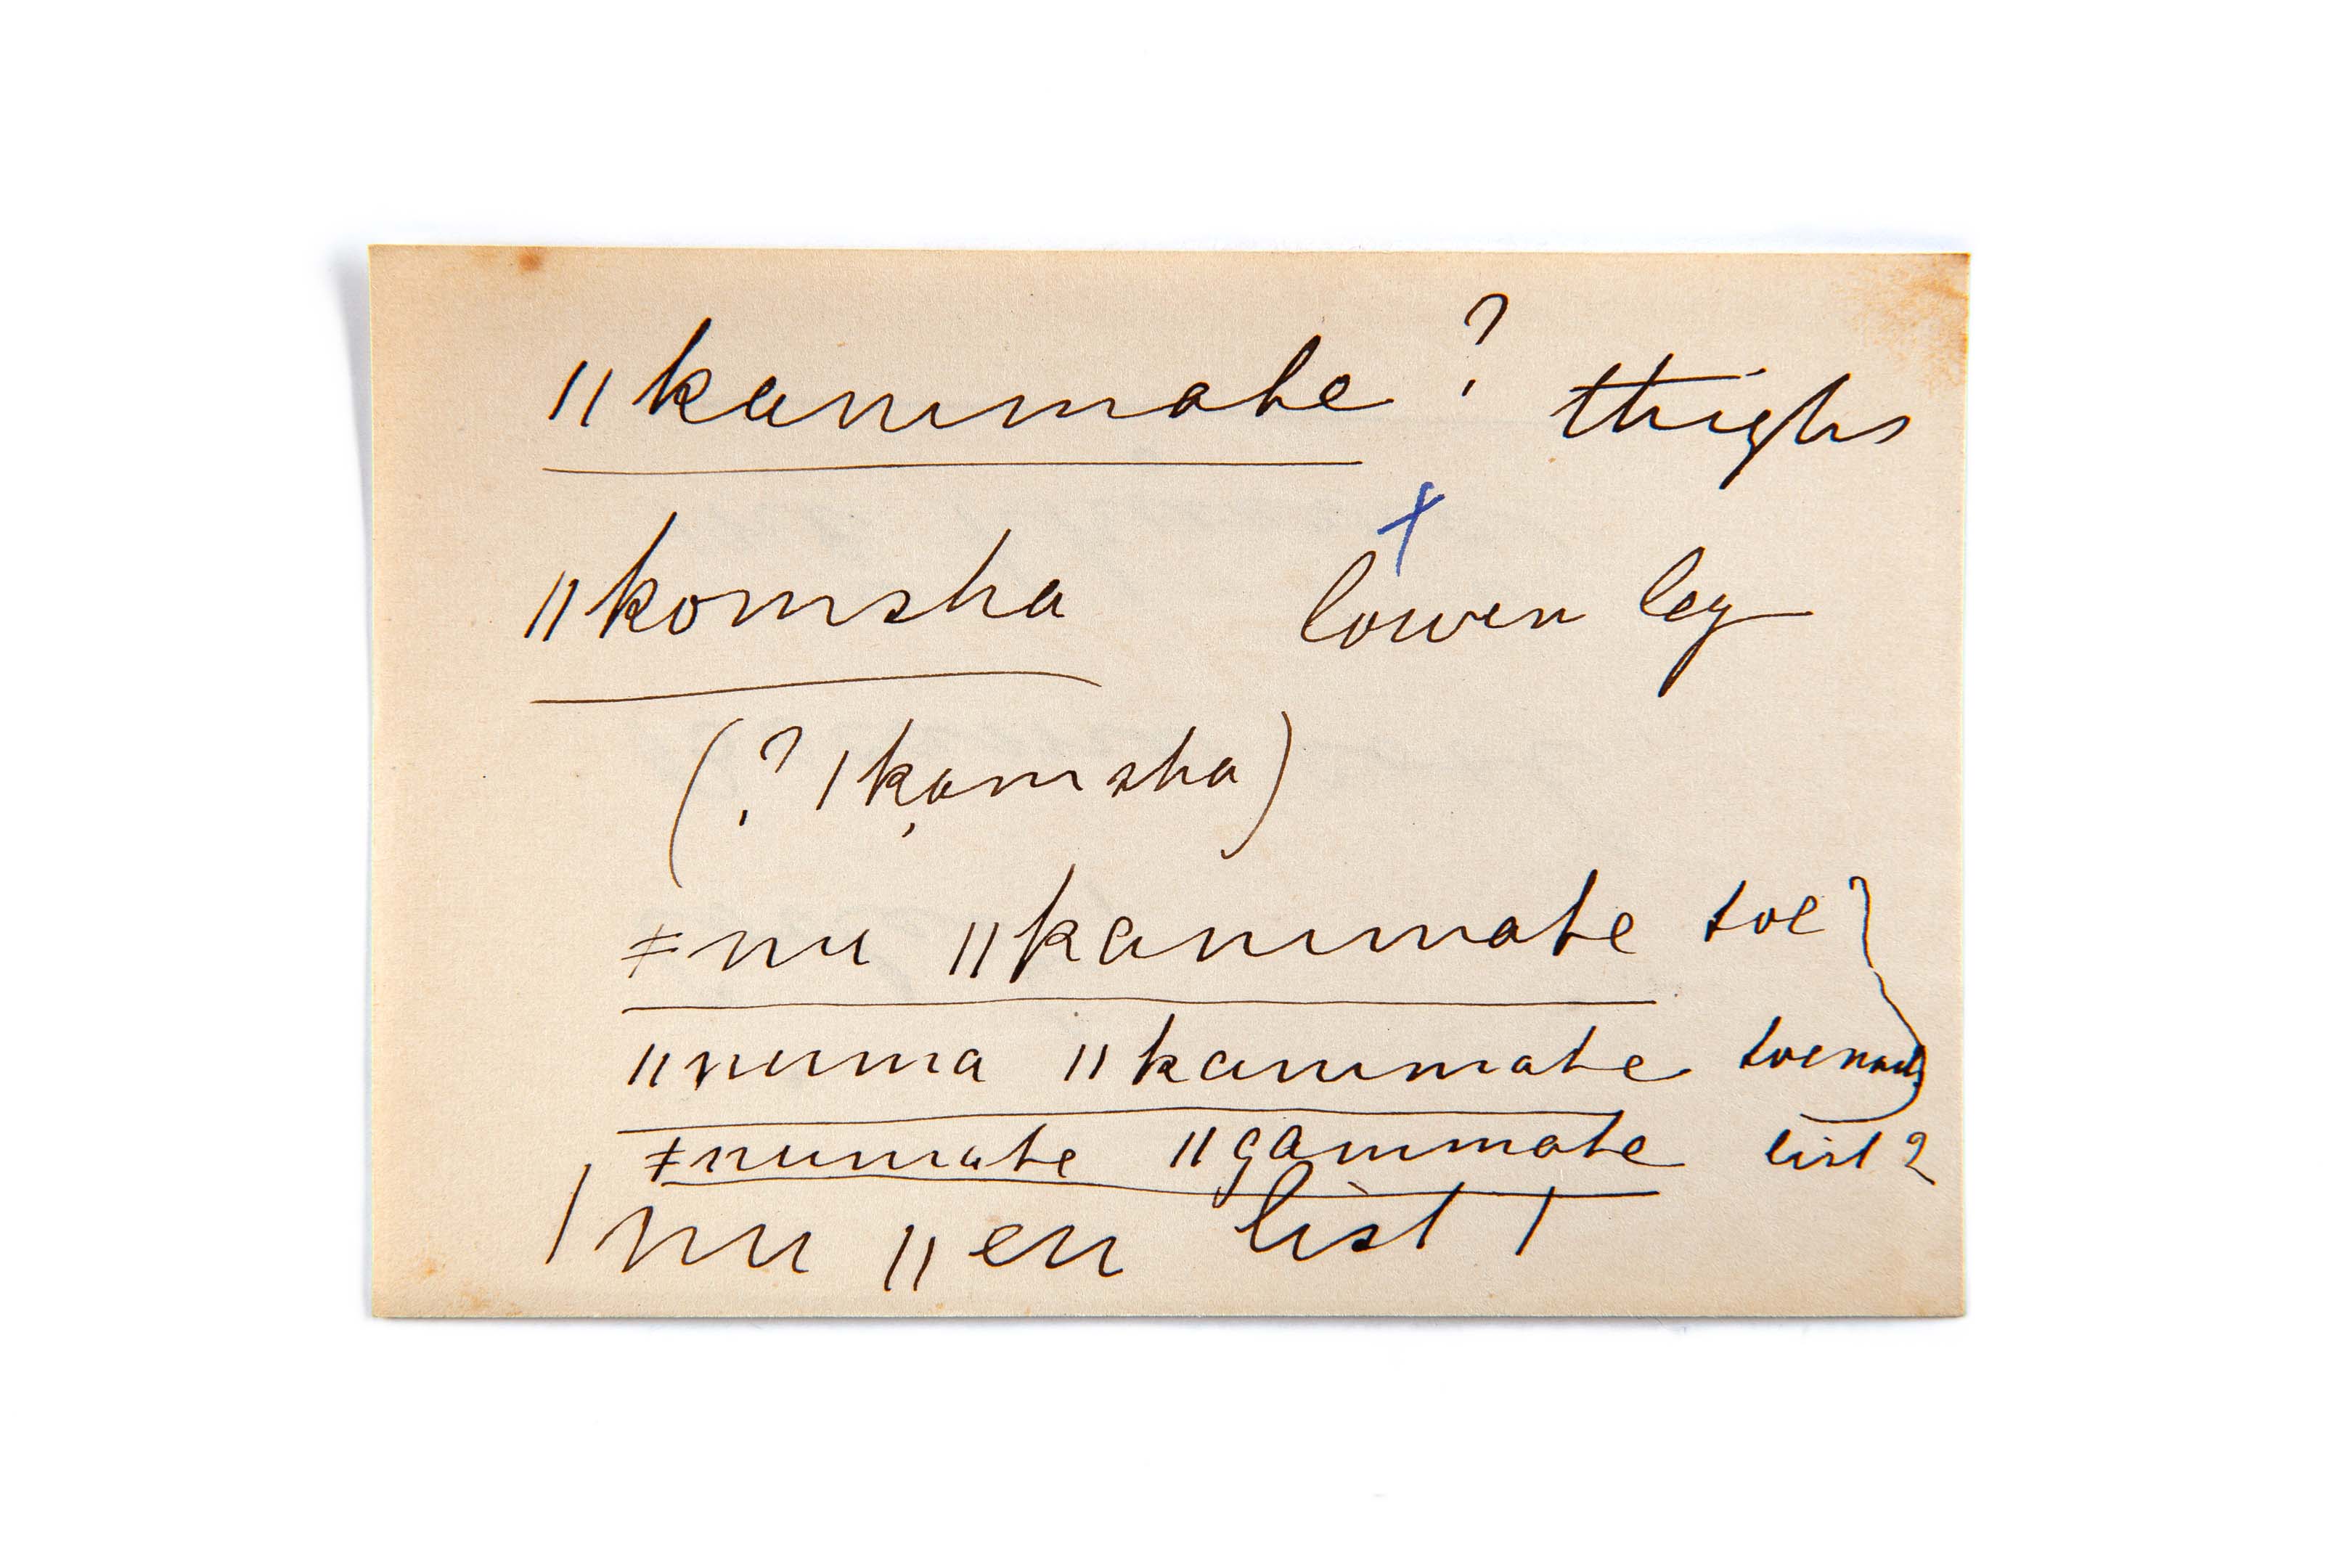 ǁkammate ? thighs
ǁkomsha lower leg
(? ǀkomsha)
ǂnu ǁkammate toe
ǁnuma ǁkammate toenails
ǂnumate ǁgammate list ?
ǀnu ǁen list !